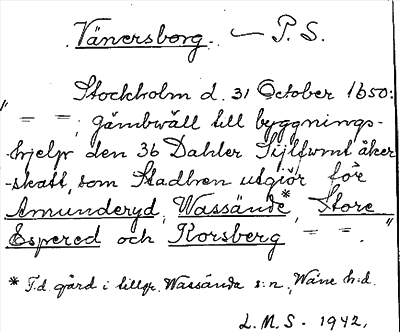 Vänersborg. — P. S.
Stockholm d. 31 October 1650:
" = = , gåmbwäll till byggnings-
-hjelp den 36 Dahler Sjlfwmt åker-
-skatt, som Stadhen utgiör för
Amunderyd, Wassände*, Store
Espered och Korsberg = = . "
* F.d. gård i tillgr. Wassända s:n, Wäne h:d.
L.M.S. - 1942.